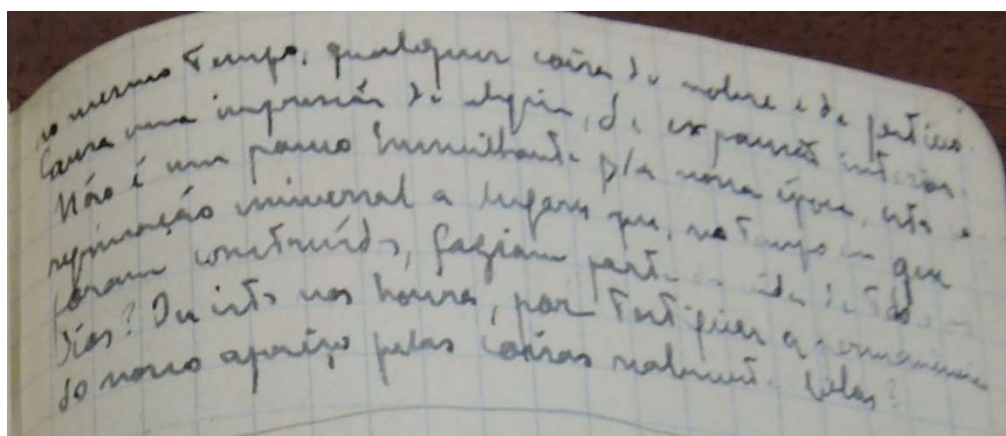 ao mesmo tempo, qualquer coisa de nobre e de
Causa uma impressão de alegria, de expansão interior.
Não é um pouco humilhante p/a nossa época, esta
universal a lugares que, no tempo em que
foram construídos, faziam parte da vida de todos os
dias? Ou isto nos honra, por testificar a permanência
do nosso apreço pelas coisas realmente belas?